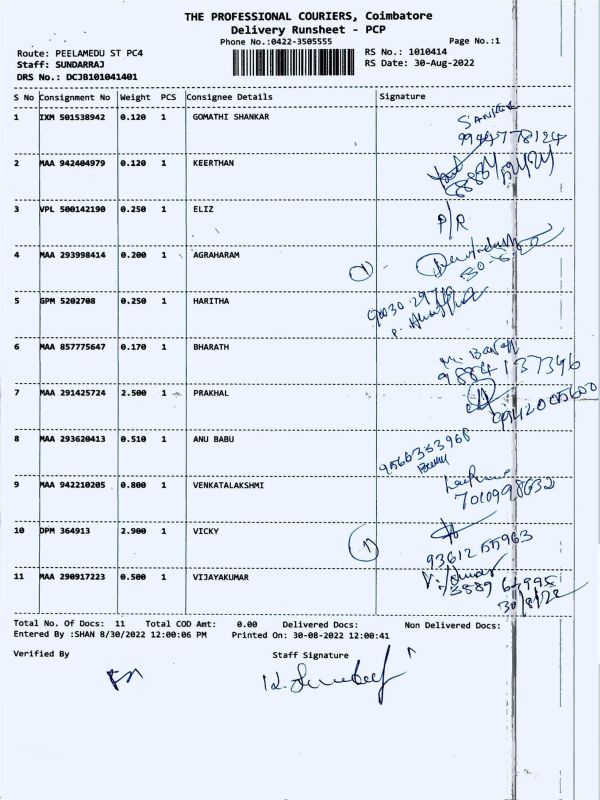 THE PROFESSIONAL COURIERS, Coimbatore
Delivery Runsheet - PCP
Phone No.:0422-3505555
Page No.:1
Route: PEELAMEDU ST PC4
RS No.: 1010414
Staff: SUNDARRAJ
RS Date: 30-Aug-2022
DRS No.: DCJB101041401
S No Consignment No Weight PCS Consignee Details Signature
1 IXM 501538942 0.120 1 GOMATHI SHANKAR
9944778124
2 MAA 942404979 0.120 1 KEERTHAN
3 VPL 500142190 0.250 1 ELIZ P/R
4 MAA 293998414 0.200 1 AGRAHARAM
5 GPM 5202708 0.250 1 HARITHA
6 MAA 857775647 0.170 1 BHARATH
9884137396
7 MAA 291425724 2.500 1 PRAKHAL
8 MAA 293620413 0.510 1 ANU BABU
9566333968
9 MAA 942210205 0.800 1 VENKATALAKSHMI
7010998632
10 DPM 364913 2.900 1 VICKY
11 MAA 290917223 0.500 1 VIJAYAKUMAR
30/8/22
Total No. Of Docs: 11 Total COD Amt: 0.00 Delivered Docs: Non Delivered Docs:
Entered By :SHAN 8/30/2022 12:00:06 PM Printed On: 30-08-2022 12:00:41
Verified By Staff Signature